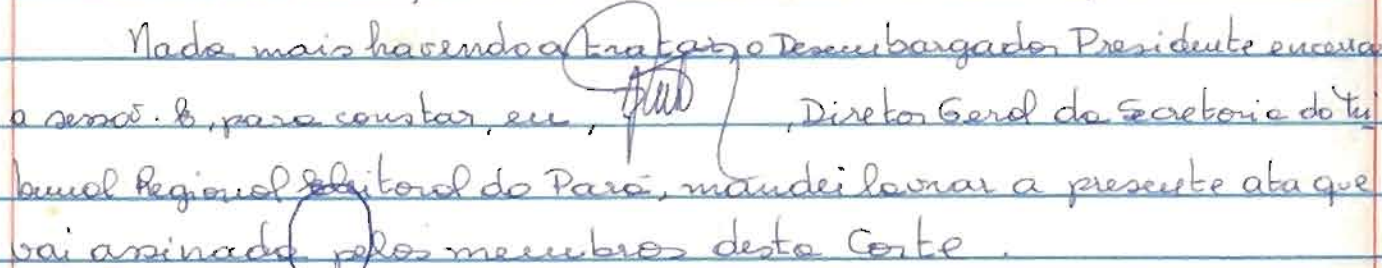 Nada mais havendo a tratar, o Desembargador Presidente encerra
a sessão. E, para constar, eu, , Diretor Geral da Secretaria do Tri
bunal Regional Eleitoral do Pará, mandei lavrar a presente ata que
vai assinada pelos membros desta Corte.